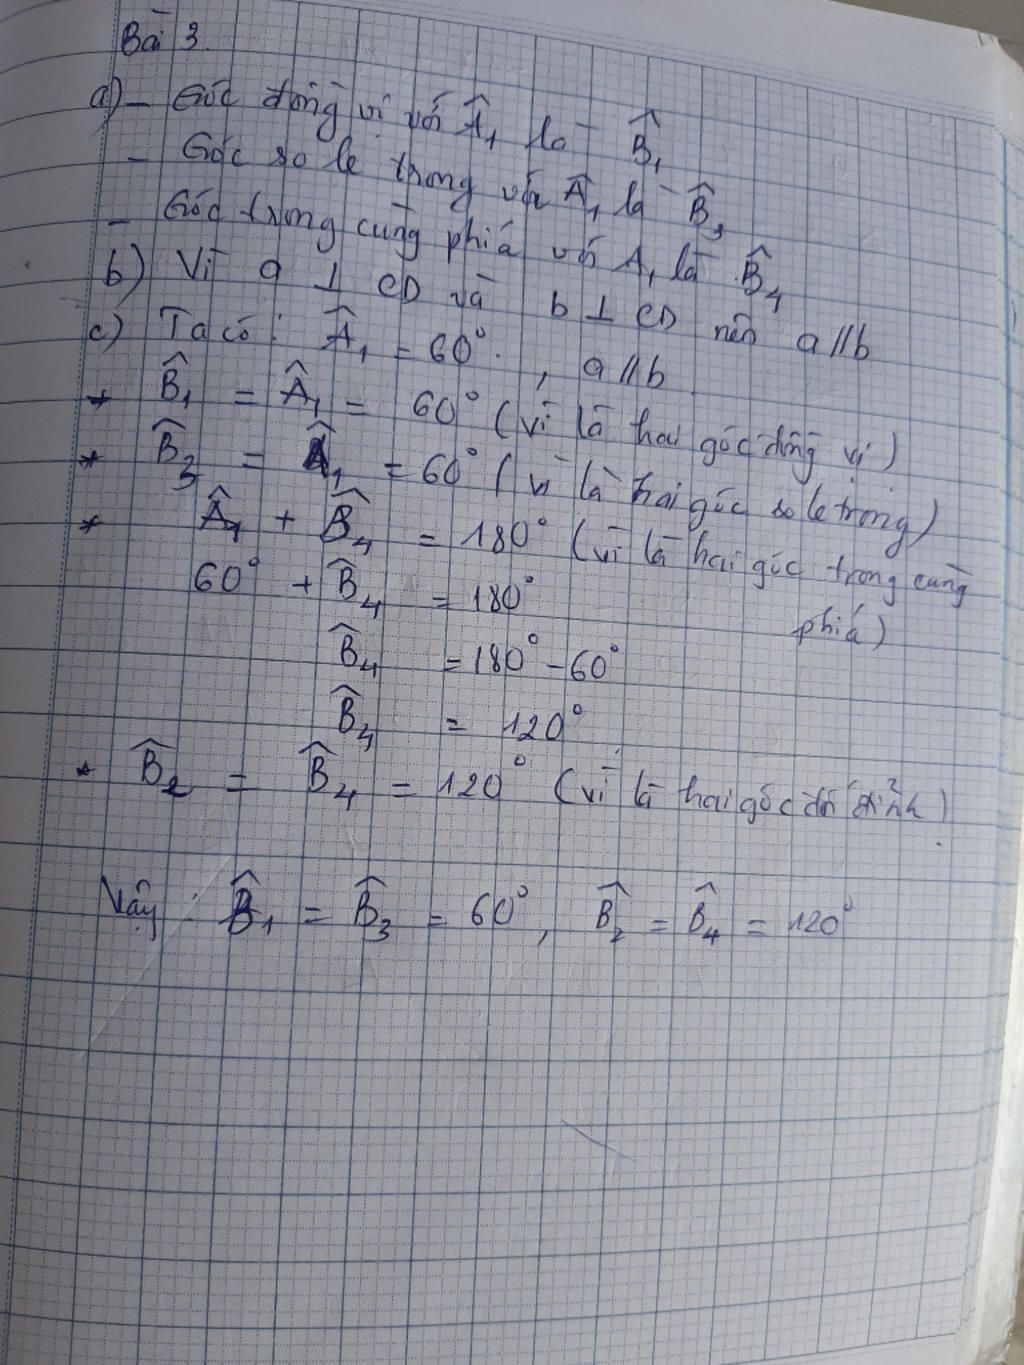 Bài 3.
a) - Góc đồng vị với Â₁ là B̂₁
- Góc so le trong với Â₁ là B̂₃
- Góc trong cùng phía với A₁ là B̂₄
b) Vì a ⊥ CD và b ⊥ CD nên a // b
c) Ta có: Â₁ = 60°, a // b
* B̂₁ = Â₁ = 60° (vì là hai góc đồng vị)
* B̂₃ = Â₁ = 60° (vì là hai góc so le trong)
* Â₁ + B̂₄ = 180° (vì là hai góc trong cùng
phía)
60° + B̂₄ = 180°
B̂₄ = 180° - 60°
B̂₄ = 120°
* B̂₂ = B̂₄ = 120° (vì là hai góc đối đỉnh)
Vậy: B̂₁ = B̂₃ = 60°, B̂₂ = B̂₄ = 120°